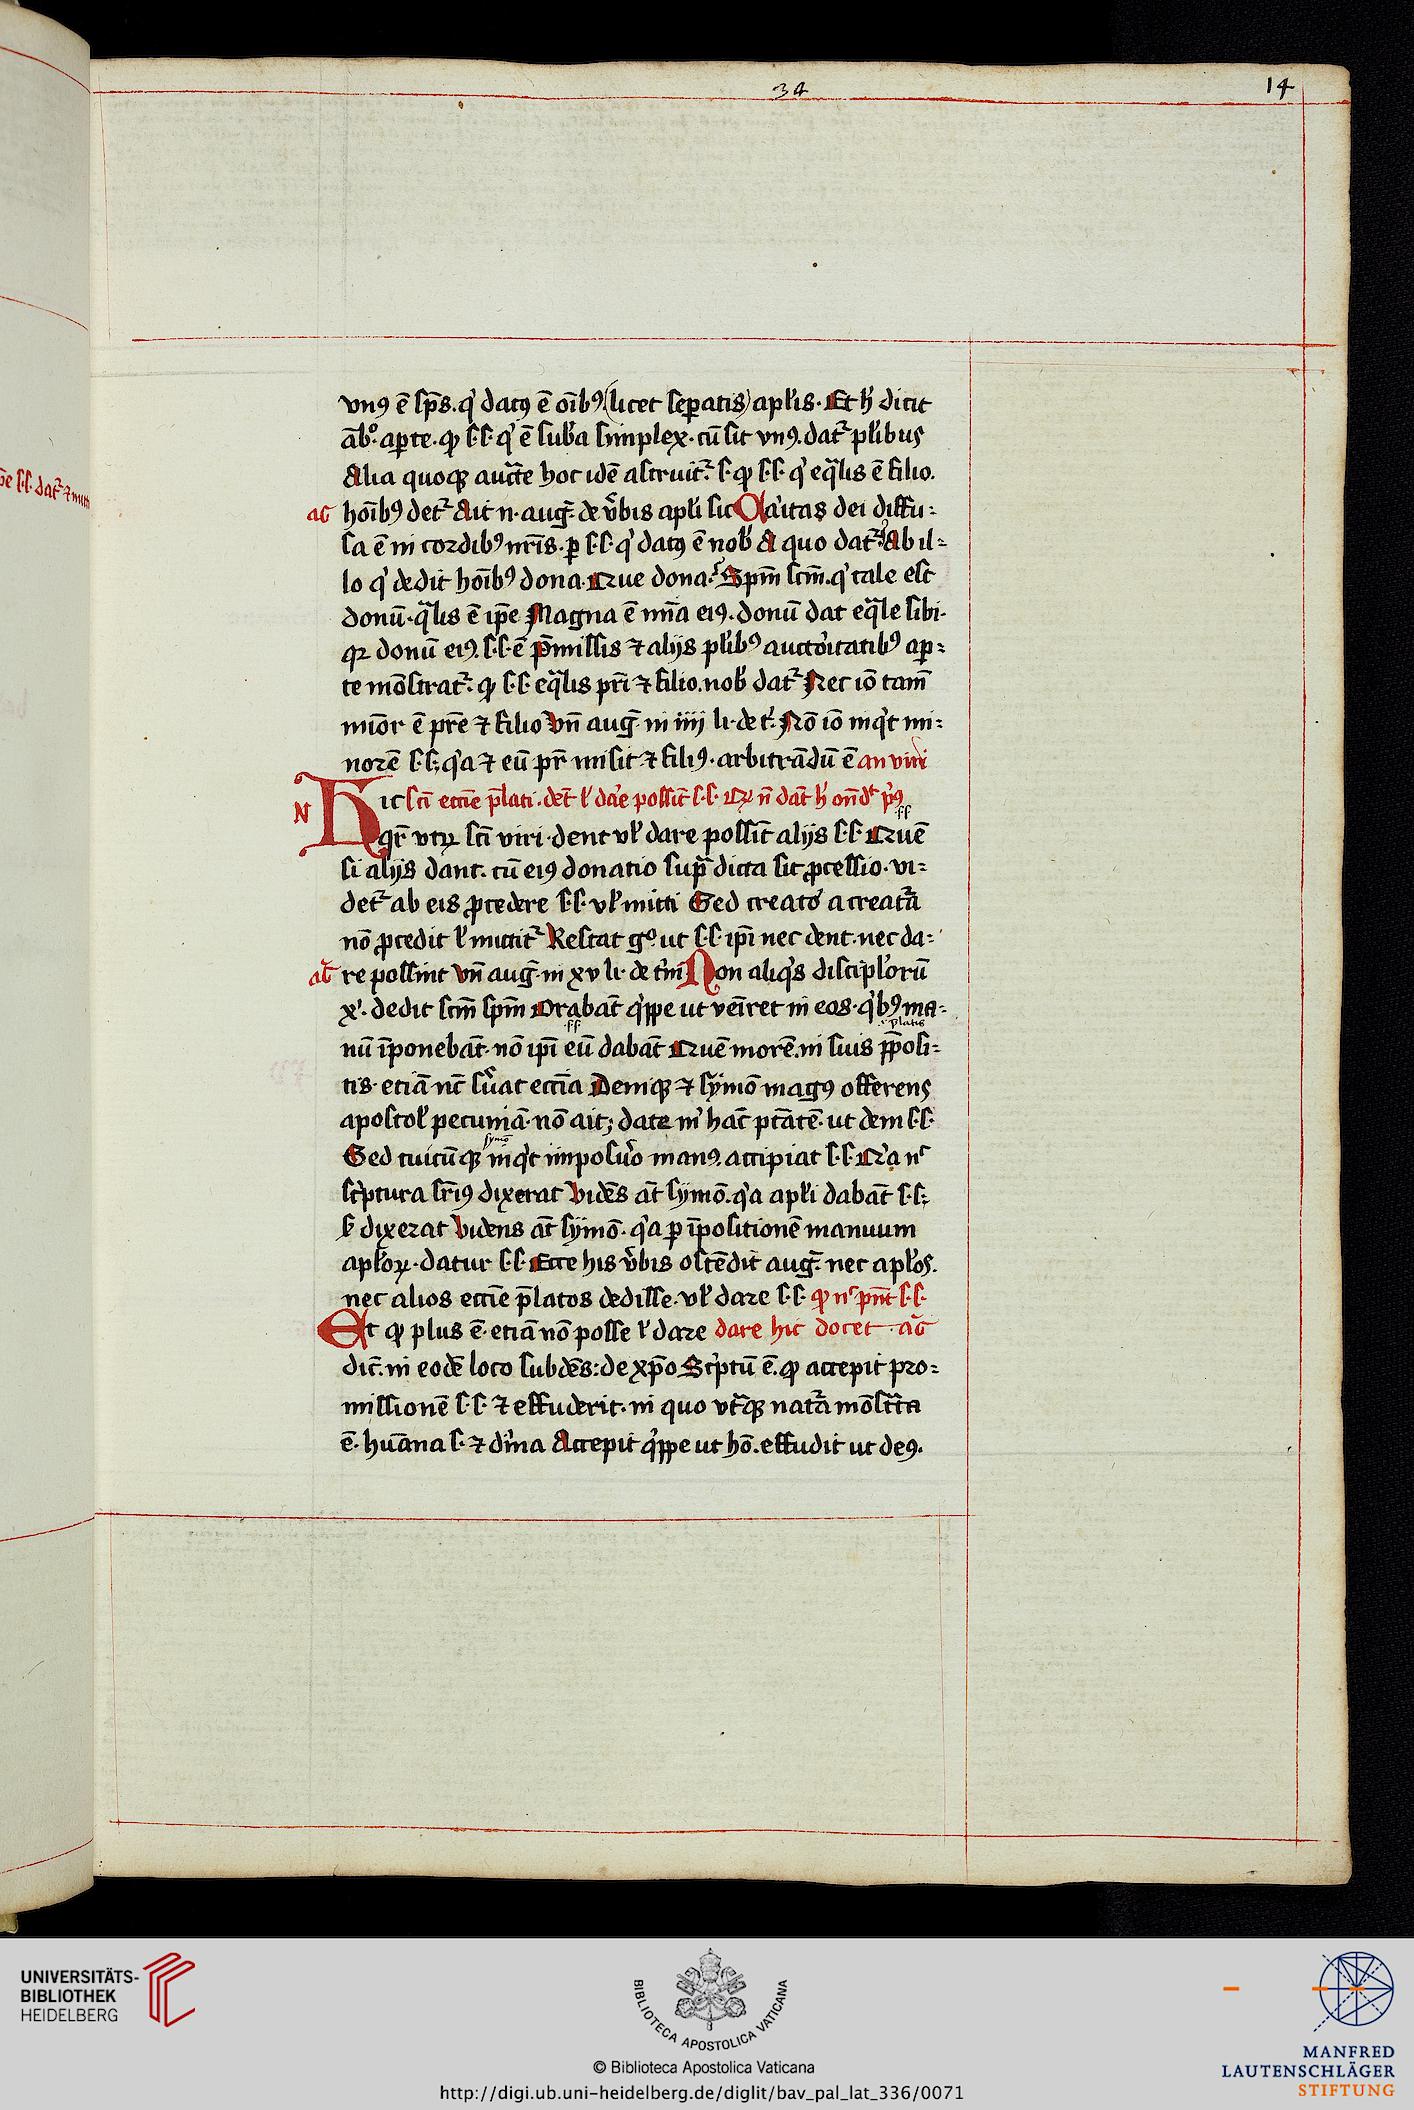 34
14
vn9 ē sp̄s. q' dat9 ē oīb9 (licet sep̱atis) apl'is. Et h' dicit
ab°. aꝑte. ꝙ s.s. q' ē sub'a simplex. cū sit vn9. dat᷑ pl'ibus
Alia quoqꝫ auct̄e hoc idē astruit᷑. s. ꝙ s.s. q' eq̄lis ē filio.
ac hoīb9 det᷑ Ait n. auḡ. de v̄bis apl'i sic Ca'itas dei diffu=
sa ē in cordib9 nr̄is. ꝑ s.s. q' dat9 ē nob' A quo dat᷑ Ab il=
lo q' dedit hoīb9 dona. Que dona. Spm̄ scm̄. q' tale est
donū. q̄lis ē ip̄e Magna ē mīa ei9. donū dat eq̄le sibi.
qꝛ donū ei9. s.s. ē P̄missis ⁊ alijs pl'ib9 auctoritatib9 aꝑ=
te mōstrat᷑. ꝙ s.s. eq̄lis pr̄i ⁊ filio. nob' dat᷑ Nec iō tam̄
mīor ē pr̄e ⁊ filio Vn̄ auḡ in iiij li. de t'. Nō iō inq't mi=
norē s.s. q'a ⁊ eū pr̄ misit ⁊ fili9. arbitrādū ē an viri
N Hic sc̄i eccīe p̄lati. det̄ l' da'e possīt s.s.
q̄r vtꝝ sc̄i viri. dent vl' dare possīt alijs s.s. Quē
ss
si alijs dant. cū ei9 donatio sup̄ dicta sit ꝓcessio. vi=
det᷑ ab eis ꝓcedere s.s. vl' mitti Sed creato' a creat̄a
nō ꝓcedit l' mittit᷑ Restat g° ut s.s. ip̄i nec dent. nec da=
ac re possint Vn̄ auḡ. in xv li. de t'in Non aliq's discipl'orū
x'. dedit scm̄ spm̄ Orabāt q'ppe ut veīret in eos. q'b9 ma=
ss
p̄latis
nū īponebāt. nō ip̄i eū dabāt Quē morē. in suis p̄posi=
tis. etiā nc̄ s'uat eccīa Deniqꝫ ⁊ symō mag9 offerens
apostol' pecuniā. nō ait; date m' hāc ptātē. ut dem s.s.
symō
Sed cuicūqꝫ inq't imposu'o man9. accipiat s.s. Q'a nc
sc'ptura pr'i9 dixerat Vidēs at̄ symō. q'a apl'i dabāt s.s;
s' dixerat Videns at̄ symō. q'a ꝑ īpositionē manuum
apl'oꝝ. datur s.s. Ecce his v̄bis ostēdit auḡ. nec apl'os.
nec alios eccīe p̄latos dedisse. vl' dare s.s. ꝙ nc pn̄t s.s.
Et ꝙ plus ē. etiā nō posse l' dare dare hic docet ac
dic̄. in eodē loco subdēs: de xp̄o Sc'ptū ē. ꝙ accepit pro=
missionē s.s. ⁊ effuderit. in quo vt'qꝫ nat̄a mōst̄ta
ē. hūana s. ⁊ d'ina Accepit q'ppe ut hō. effudit ut de9.
UNIVERSITÄTS-
BIBLIOTHEK
HEIDELBERG
BIBLIOTECA APOSTOLICA VATICANA
© Biblioteca Apostolica Vaticana
http://digi.ub.uni-heidelberg.de/diglit/bav_pal_lat_336/0071
MANFRED
LAUTENSCHLÄGER
STIFTUNG